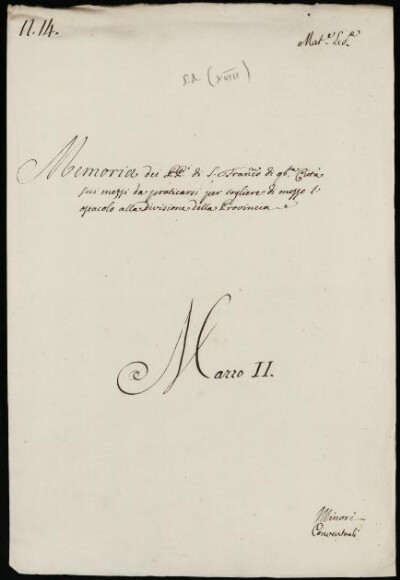 11.14.
Mat.e Ecc.e
s.d. (XVIII)
Memoria dei PP.i di S. Franc.o di q.ta Città
sui mezzi da praticarsi per togliere di mezzo l'
ostacolo alla divisione della Provincia
Mazzo II.
Minori
Conventuali